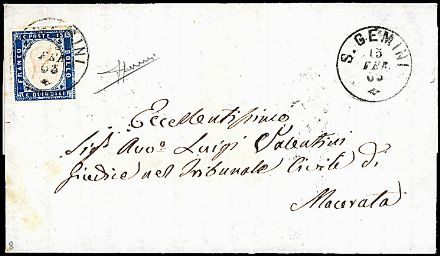 C. POSTE 15
FRANCO
BOLLO
C. QUINDICI
MINI
FEB.
63
S. GEMINI
15
FEB.
63
Eccellentissimo
Sig.r Avv.o Luigi Valentini
Giudice nel Tribunale Civile di
Macerata
8